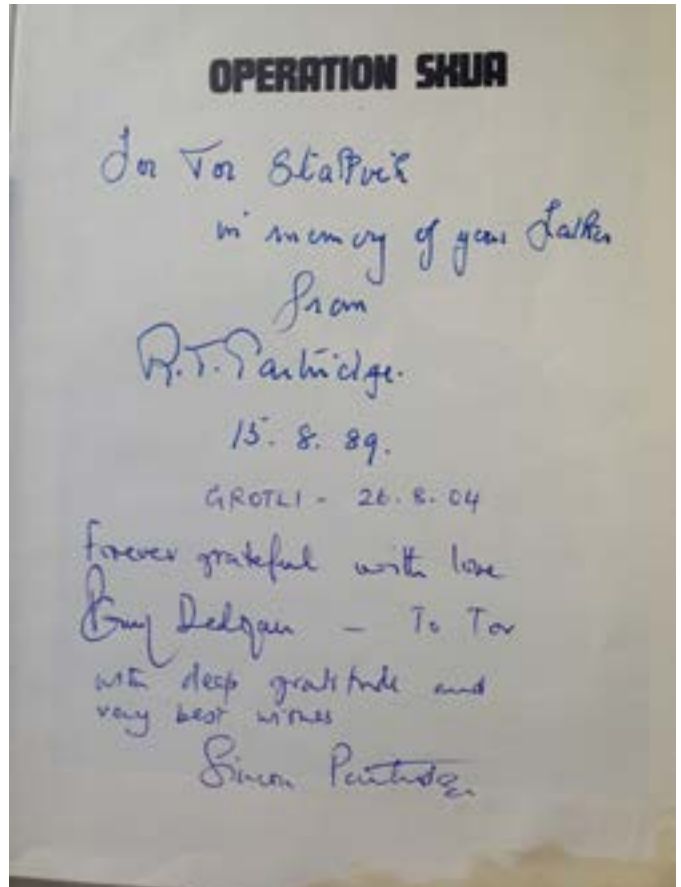 OPERATION SKUA
For Tor
in memory of your Father
from
R.T. Partridge.
15. 8. 89.
GROTLI - 26.8.04
Forever grateful with love
To Tor
with deep gratitude and
very best wishes
Simon Partridge